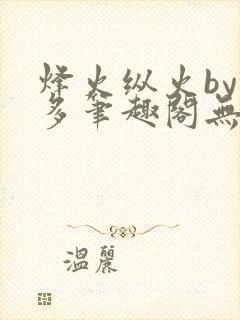 烽火纵火by
多笔趣阁無
温麗